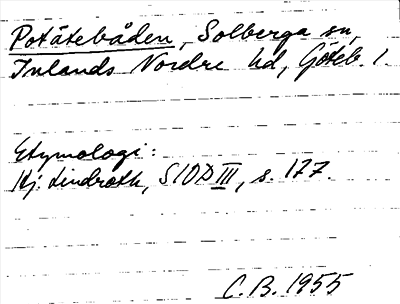 Potätebåden, Solberga sn,
Inlands Nordre hd, Göteb. l.
Etymologi:
Hj. Lindroth, SIOD III, s. 177.
C.B. 1955